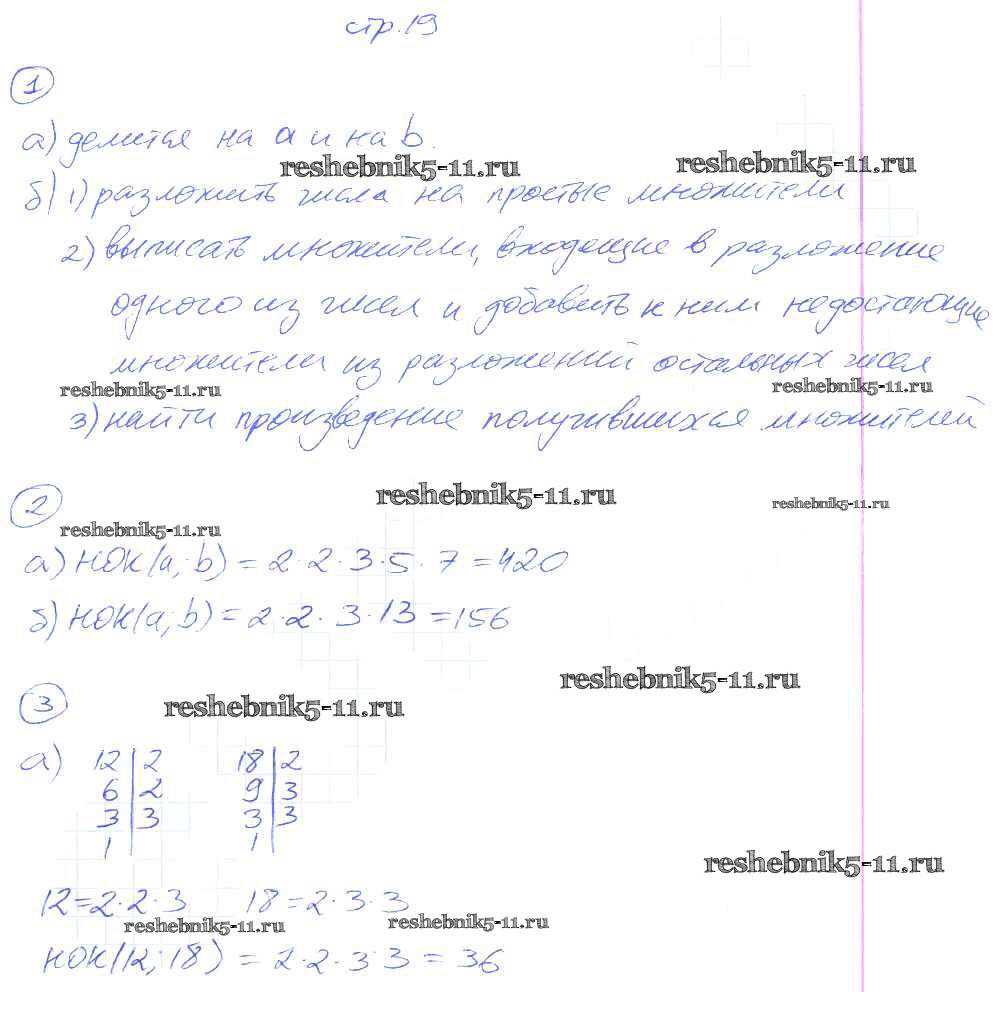 стр. 19
1
а) делится на a и на b.
reshebnik5-11.ru
reshebnik5-11.ru
б) 1) разложить числа на простые множители
2) выписать множители, входящие в разложение
одного из чисел и добавить к ним недостающие
множители из разложений остальных чисел
reshebnik5-11.ru
reshebnik5-11.ru
3) найти произведение получившихся множителей
reshebnik5-11.ru
reshebnik5-11.ru
2
reshebnik5-11.ru
а) НОК(a; b) = 2·2·3·5·7 = 420
б) НОК(a; b) = 2·2·3·13 = 156
reshebnik5-11.ru
3
reshebnik5-11.ru
а) 12 | 2 18 | 2
6 | 2 9 | 3
3 | 3 3 | 3
1 | 1 |
reshebnik5-11.ru
12 = 2·2·3 18 = 2·3·3
reshebnik5-11.ru
reshebnik5-11.ru
НОК(12; 18) = 2·2·3·3 = 36